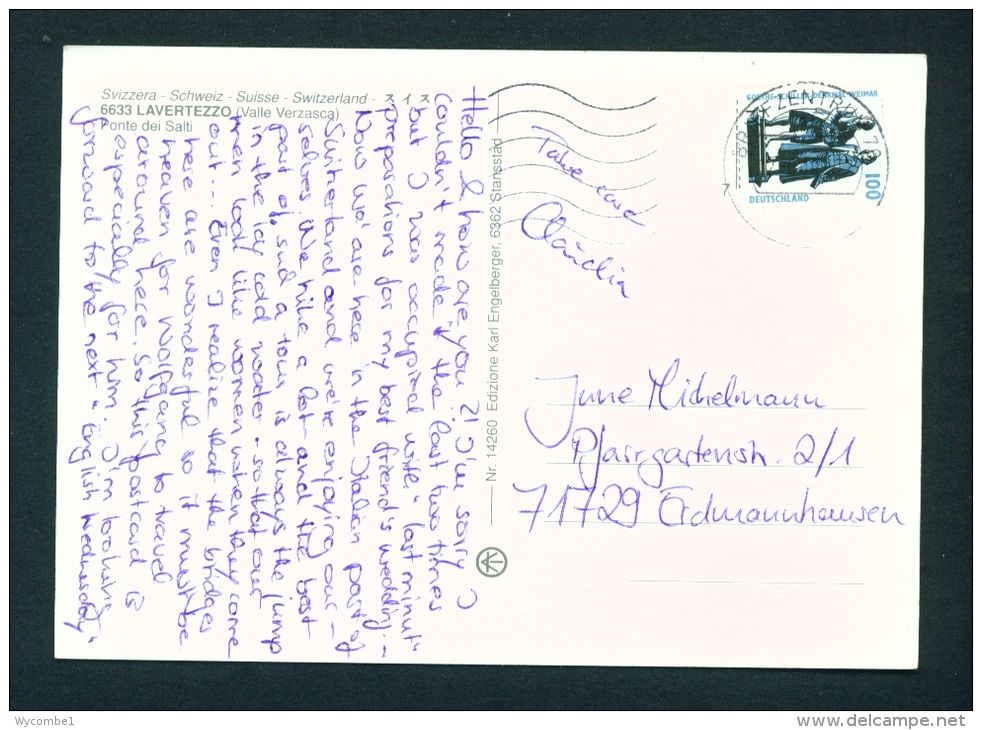 Svizzera - Schweiz - Suisse - Switzerland - スイス
6633 LAVERTEZZO (Valle Verzasca)
Ponte dei Salti
Hello & how are you?! I'm sorry I
couldn't made it the last two times
but I was occupied with "last minut"
preparations for my best friend's wedding.-
Now we are here in the Italian part of
Switzerland and we're enjoying our-
selves. We hike a lot and the best
part of such a tour is always the jump
in the icy cold water - so that our
men look like women when they come
out... Even I realize that the bridges
here are wonderful so it must be
heaven for Wolfgang to travel
around here. So this postcard is
especially for him. I'm looking
forward to the next "English Wednesday"
Take care
Claudia
Nr. 14260 Edizione Karl Engelberger, 6362 Stansstad
GOETHE-SCHILLER-DENKMAL WEIMAR
100
DEUTSCHLAND
BRIEFZENTRUM
June Michelmann
Pfarrgartenstr. 2/1
71729 Erdmannhausen
Wycombe1
http://www.delcampe.net